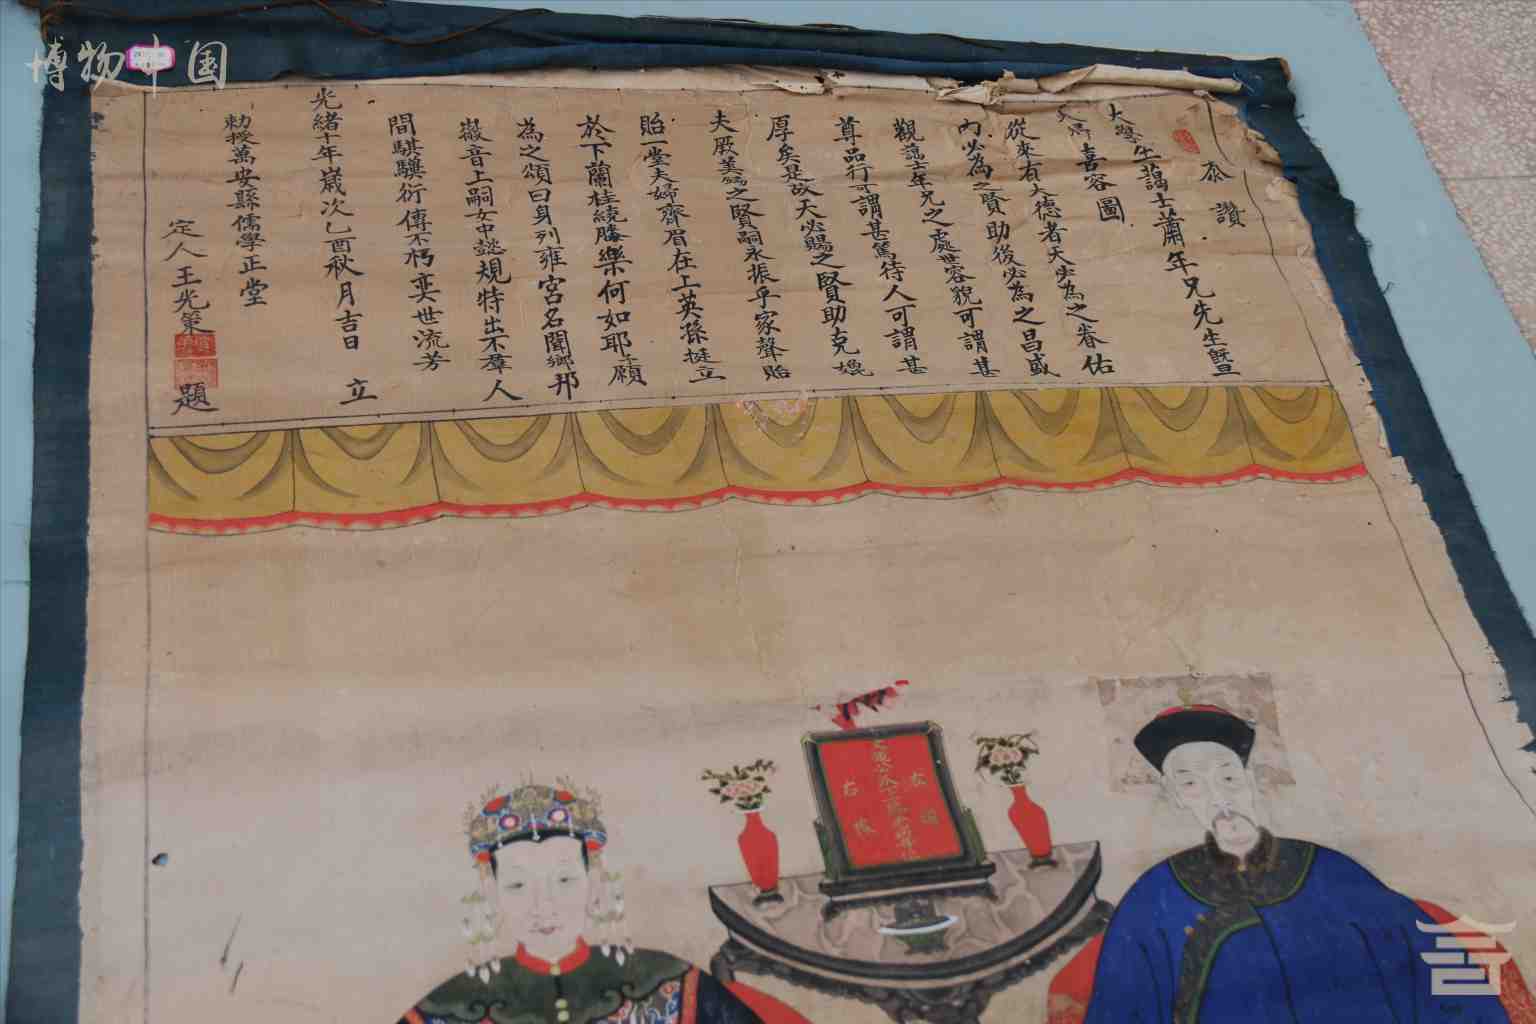 恭讚
大學生藹士蕭年兄先生曁
喜容圖
從來有大德者天必為之眷佑
內必為之賢助後必為之昌盛
觀藹士年兄之處世容貌可謂甚
尊品行可謂甚篤待人可謂甚
厚矣是故天必賜之賢助克媲
夫厥美錫之賢嗣永振乎家聲貽
貽一堂夫婦齊眉在上英孫挺立
於下蘭桂繞膝樂何如耶願
為之頌曰身列雍宮名聞鄉邦
徽音上嗣女中懿規特出不羣人
間騏驥衍傳不朽奕世流芳
光緒十一年嵗次乙酉秋月吉日 立
勅授萬安縣儒學正堂
定人王光策 題
博物中国